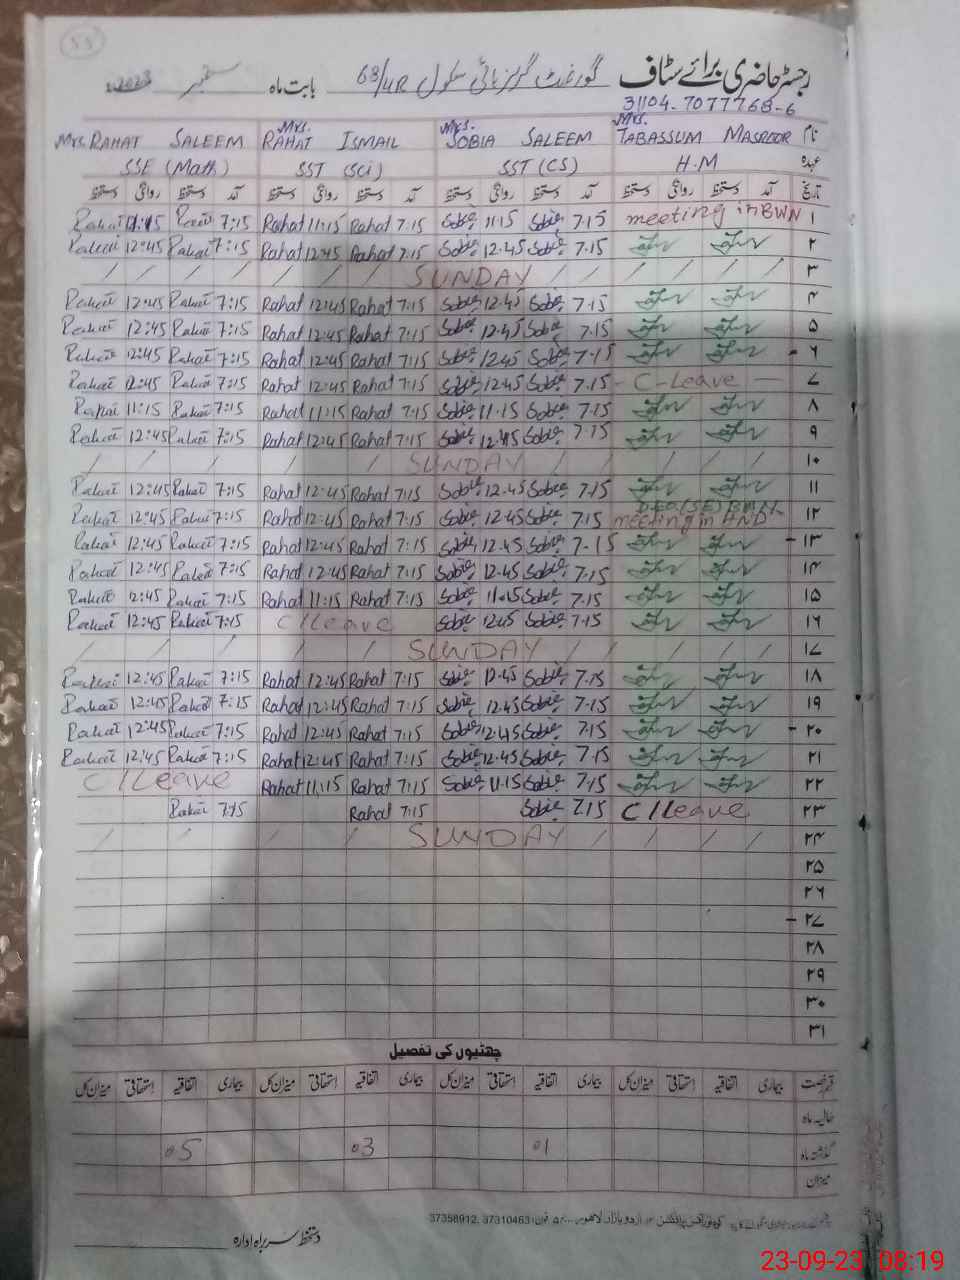 55
رجسٹر حاضری برائے سٹاف گورنمنٹ گرلز ہائی سکول 68/4R بابت ماہ ستمبر 2023
31104-7077768-6
نام Mrs. TABASSUM MASROOR Mrs. SOBIA SALEEM Mrs. RAHAT ISMAIL Mrs. RAHAT SALEEM
عہدہ H.M SST (CS) SST (Sci) SSE (Math)
تاریخ آمد دستخط روانگی دستخط آمد دستخط روانگی دستخط آمد دستخط روانگی دستخط آمد دستخط روانگی دستخط
۱ meeting in BWN 7.15 Sobia 11.15 Sobia 7.15 Rahat 11:15 Rahat 7:15 Rahat 11:15 Rahat
۲ 7.15 Sobia 12.45 Sobia 7.15 Rahat 12:45 Rahat 7:15 Rahat 12:45 Rahat
۳ SUNDAY
۴ 7.15 Sobia 12.45 Sobia 7.15 Rahat 12:45 Rahat 7:15 Rahat 12:45 Rahat
۵ 7.15 Sobia 12.45 Sobia 7.15 Rahat 12:45 Rahat 7:15 Rahat 12:45 Rahat
۶ 7.15 Sobia 12.45 Sobia 7.15 Rahat 12:45 Rahat 7:15 Rahat 12:45 Rahat
۷ C-Leave 7.15 Sobia 12.45 Sobia 7.15 Rahat 12:45 Rahat 7:15 Rahat 12:45 Rahat
۸ 7.15 Sobia 11.15 Sobia 7.15 Rahat 11:15 Rahat 7:15 Rahat 11:15 Rahat
۹ 7.15 Sobia 12.45 Sobia 7.15 Rahat 12:45 Rahat 7:15 Rahat 12:45 Rahat
۱۰ SUNDAY
۱۱ 7.15 Sobia 12.45 Sobia 7:15 Rahat 12:45 Rahat 7:15 Rahat 12:45 Rahat
۱۲ meeting in HND 7.15 Sobia 12.45 Sobia 7:15 Rahat 12:45 Rahat 7:15 Rahat 12:45 Rahat
۱۳ 7-15 Sobia 12.45 Sobia 7:15 Rahat 12:45 Rahat 7:15 Rahat 12:45 Rahat
۱۴ 7.15 Sobia 12.45 Sobia 7:15 Rahat 12:45 Rahat 7:15 Rahat 12:45 Rahat
۱۵ 7.15 Sobia 11.15 Sobia 7:15 Rahat 11:15 Rahat 7:15 Rahat 12:45 Rahat
۱۶ 7.15 Sobia 12.45 Sobia C/leave 7:15 Rahat 12:45 Rahat
۱۷ SUNDAY
۱۸ 7.15 Sobia 12.45 Sobia 7:15 Rahat 12:45 Rahat 7:15 Rahat 12:45 Rahat
۱۹ 7.15 Sobia 12.45 Sobia 7:15 Rahat 12:45 Rahat 7:15 Rahat 12:45 Rahat
۲۰ 7.15 Sobia 12.45 Sobia 7:15 Rahat 12:45 Rahat 7:15 Rahat 12:45 Rahat
۲۱ 7.15 Sobia 12.45 Sobia 7:15 Rahat 12:45 Rahat 7:15 Rahat 12:45 Rahat
۲۲ 7.15 Sobia 11.15 Sobia 7:15 Rahat 11:15 Rahat C/leave
۲۳ C/leave 7.15 Sobia 7:15 Rahat 7:15 Rahat
۲۴ SUNDAY
۲۵
۲۶
۲۷
۲۸
۲۹
۳۰
۳۱
چھٹیوں کی تفصیل
قسم رخصت بیماری اتفاقیہ استحقاقی میزان کل بیماری اتفاقیہ استحقاقی میزان کل بیماری اتفاقیہ استحقاقی میزان کل بیماری اتفاقیہ استحقاقی میزان کل
حالیہ ماہ
گذشتہ ماہ 01 03 05
میزان
اردو بازار لاہور فون: 37310463, 37358912
دستخط سربراہ ادارہ
23-09-23 08:19